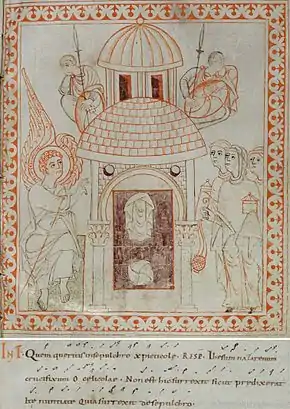 INT. Quem queritis in sepulchro xpicole. RESP. Ihesum nazarenum
crucifixum O celicole. Non est hic surrexit sicut predixerat
Ite nuntiate quia surrexit de sepulchro.